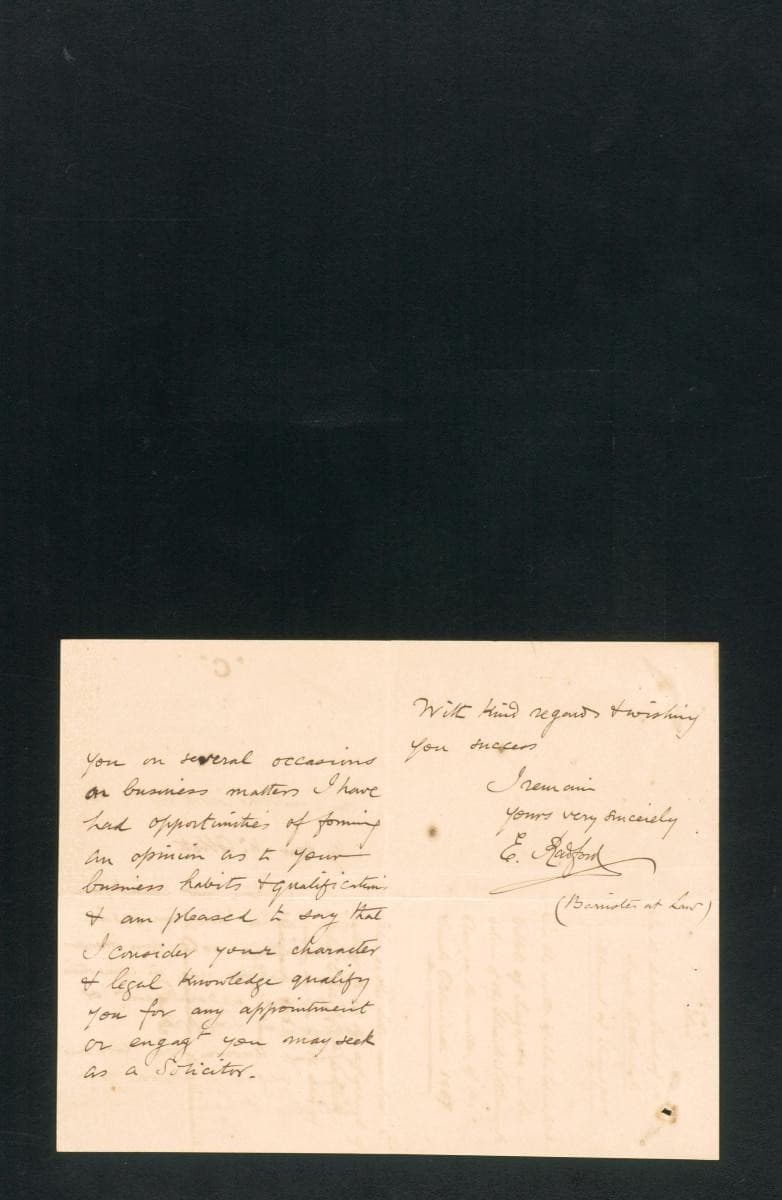 you on several occasions
on business matters I have
had opportunities of forming
an opinion as to your
business habits & qualifications
& am pleased to say that
I consider your character
& legal knowledge qualify
you for any appointment
or engagt you may seek
as a Solicitor.
With kind regards & wishing
you success
I remain
yours very sincerely
E. Radford
(Barrister at Law)